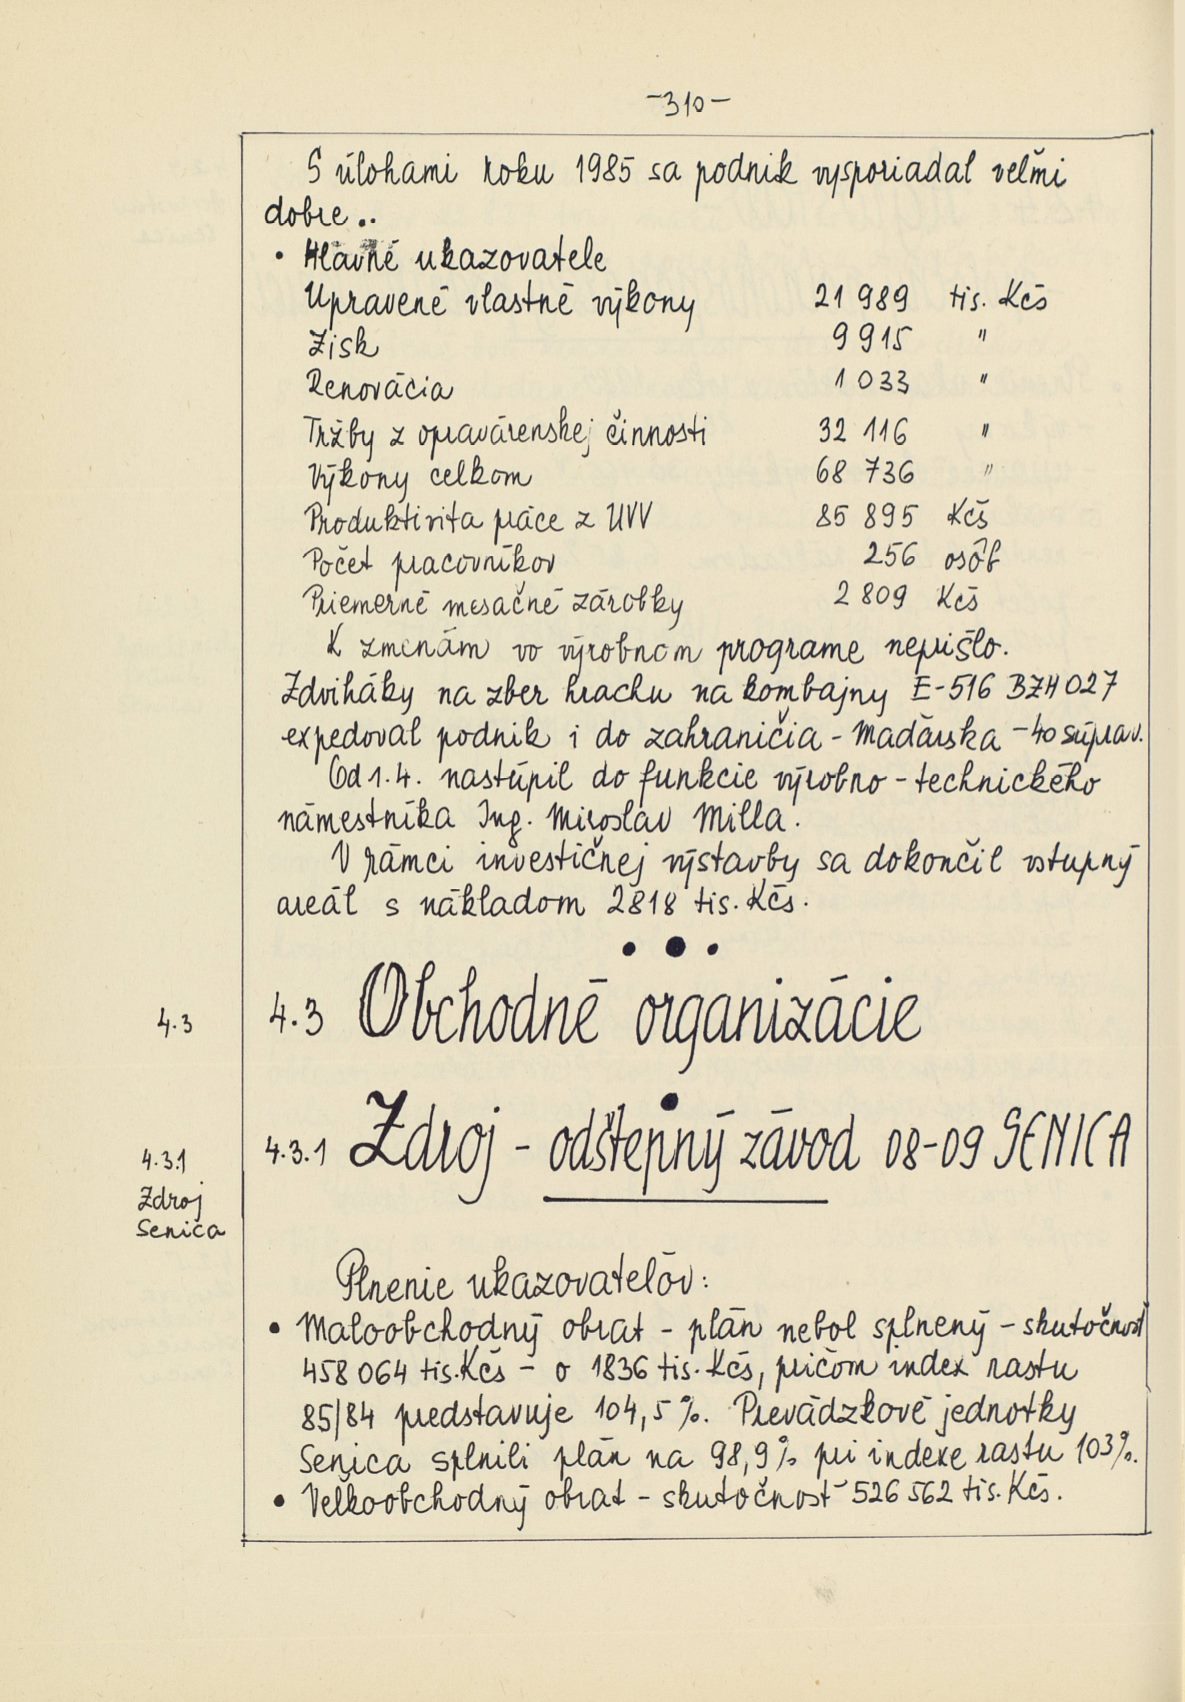 -310-
S úlohami roku 1985 sa podnik vysporiadal veľmi
dobre..
• Hlavné ukazovatele
Upravené vlastné výkony 21 989 tis. Kčs
Zisk 9 915 "
Renovácia 1 033 "
Tržby z opravárenskej činnosti 32 116 "
Výkony celkom 68 736 "
Produktivita práce z UVV 85 895 Kčs
Počet pracovníkov 256 osôb
Priemerné mesačné zárobky 2 809 Kčs
K zmenám vo výrobnom programe neprišlo.
Zdviháky na zber hrachu na kombajny E-516 BZH 027
expedoval podnik i do zahraničia - Maďarska - 40 súprav.
Od 1.4. nastúpil do funkcie výrobno - technického
námestníka Ing. Miroslav Milla.
V rámci investičnej výstavby sa dokončil vstupný
areál s nákladom 2818 tis. Kčs.
• • •
4.3
4.3 Obchodné organizácie
4.3.1 Zdroj - odštepný závod 08-09 SENICA
4.3.1
Zdroj
Senica
Plnenie ukazovateľov:
• Maloobchodný obrat - plán nebol splnený - skutočnosť
458 064 tis. Kčs - o 1836 tis. Kčs, pričom index rastu
85/84 predstavuje 104,5 %. Prevádzkové jednotky
Senica splnili plán na 98,9 % pri indexe rastu 103 %.
• Veľkoobchodný obrat - skutočnosť - 526 562 tis. Kčs.